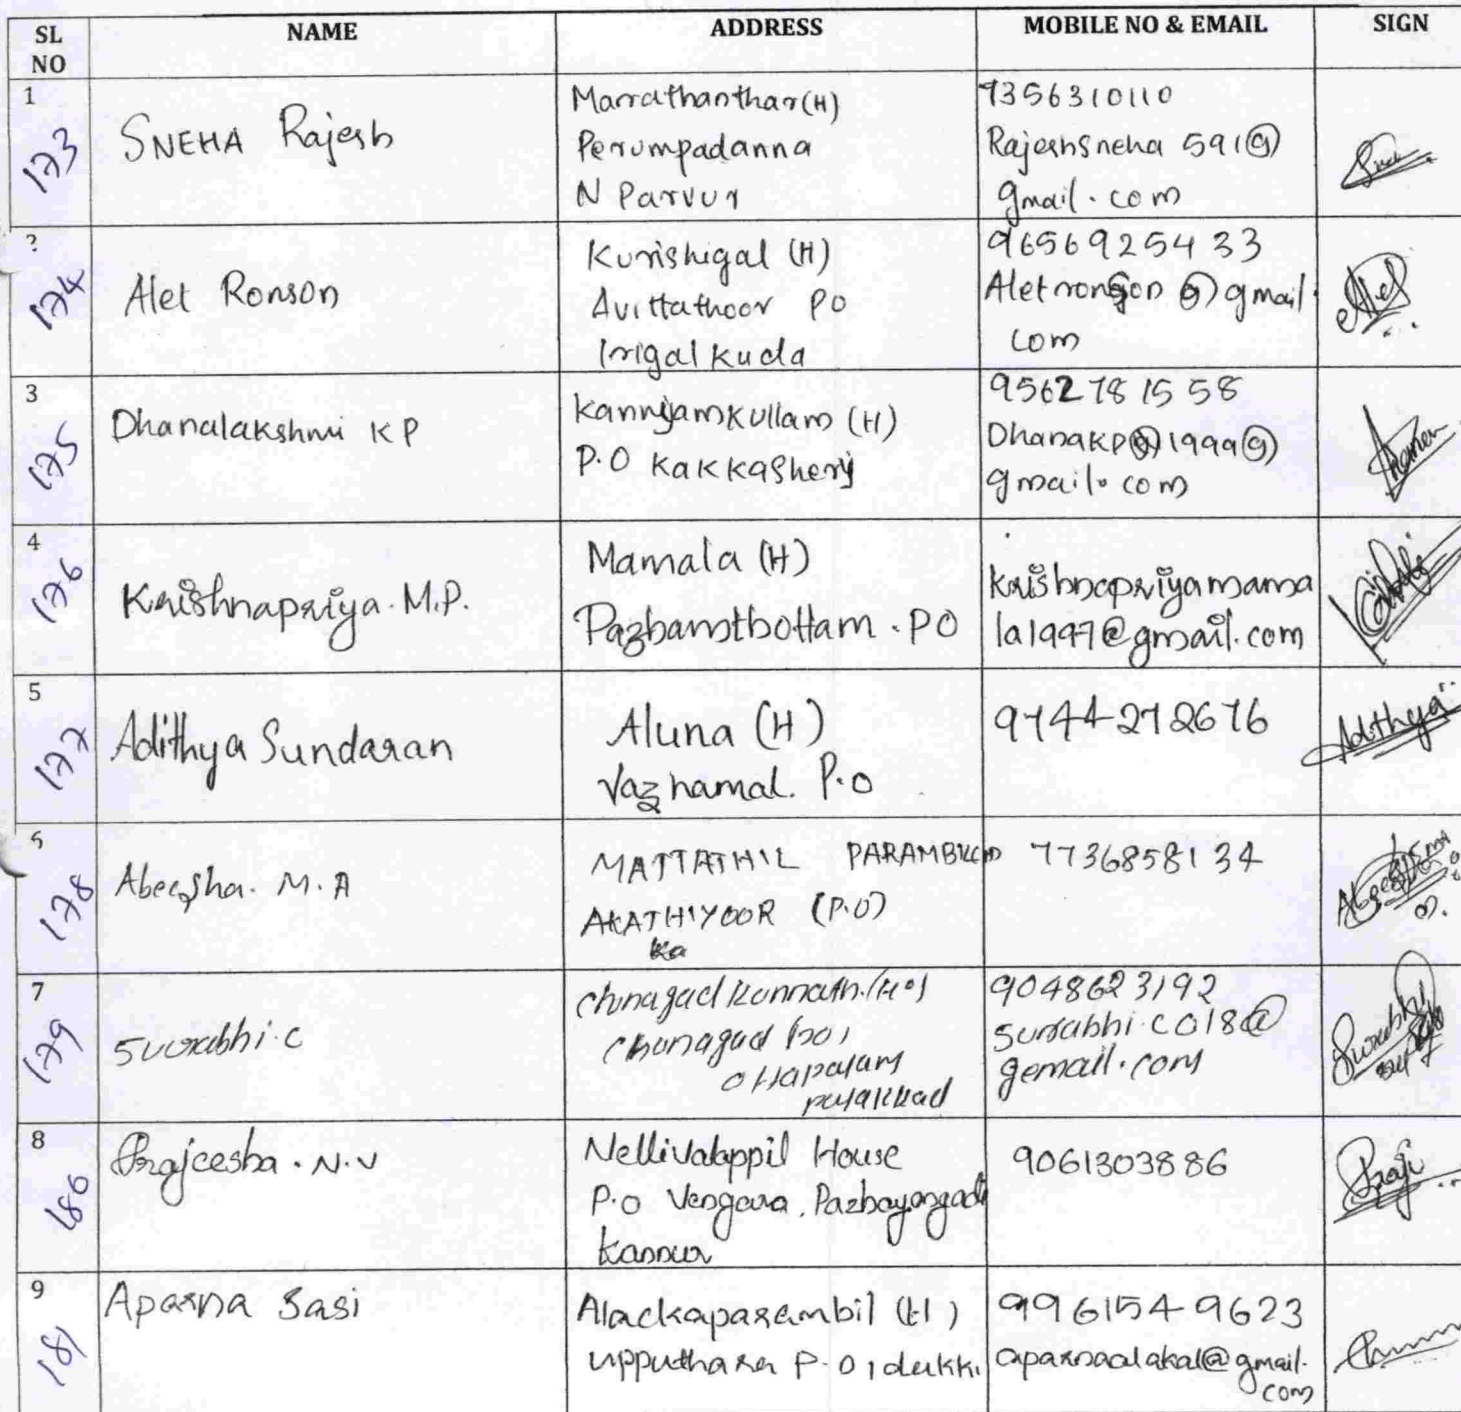 SL NO NAME ADDRESS MOBILE NO & EMAIL SIGN
1 173
SNEHA Rajesh
Marrathanthar (H)
Perumpadanna
N Parvur
9356310110
Rajeshsneha 591@
gmail.com
174
Alet Ronson
Kurishigal (H)
Avittathoor PO
Irigalkuda
9656925433
Aletronson @ gmail.
com
Alet
3 175
Dhanalakshmi KP
Kannyamkullam (H)
P.O Kakkashery
9562781558
DhanaKP@1999@
gmail.com
4 176
Krishnapriya. M.P.
Mamala (H)
Pazhamthottam. PO
krishnapriyamama
la1997@gmail.com
5 177
Adithya Sundaran
Aluna (H)
Vazhamal. P.O
9744272676
Adithya
6 178
Abeesha. M.A
MATTATHIL PARAMBIL
AKATHIYOOR (P.O)
Ka
7736858134
7 179
Surabhi.C
Chunagad Kunnath.(Ho)
Chunagad (po)
Ottapalam
palakkad
9048623192
surabhi.c018@
gemail.com
Surabhi
8 180
Prajeesha. N.V
Nellivalappil House
P.O Vengara, Pazhayangadi
Kannur
9061303886
Praji
9 181
Aparna Sasi
Alackaparambil (H)
Upputhara P.O idukki
9961549623
aparnaalakal@gmail.
com